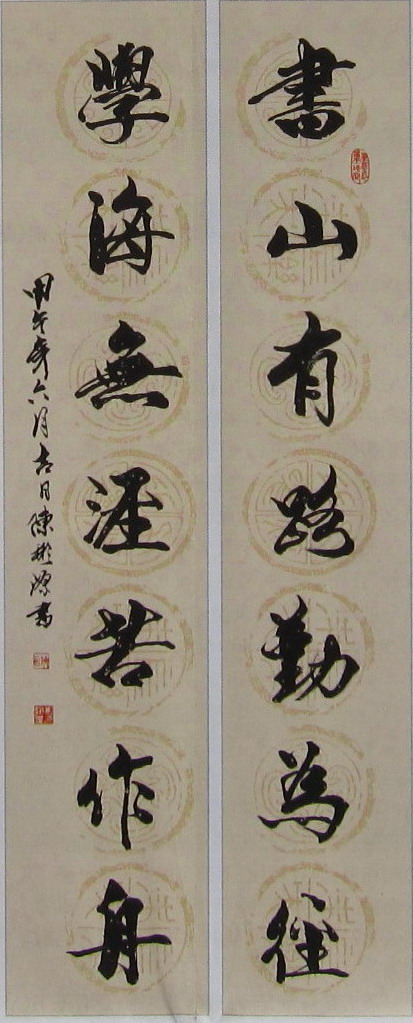 書山有路勤為徑
學海無涯苦作舟
甲午年六月吉日陳彬源書